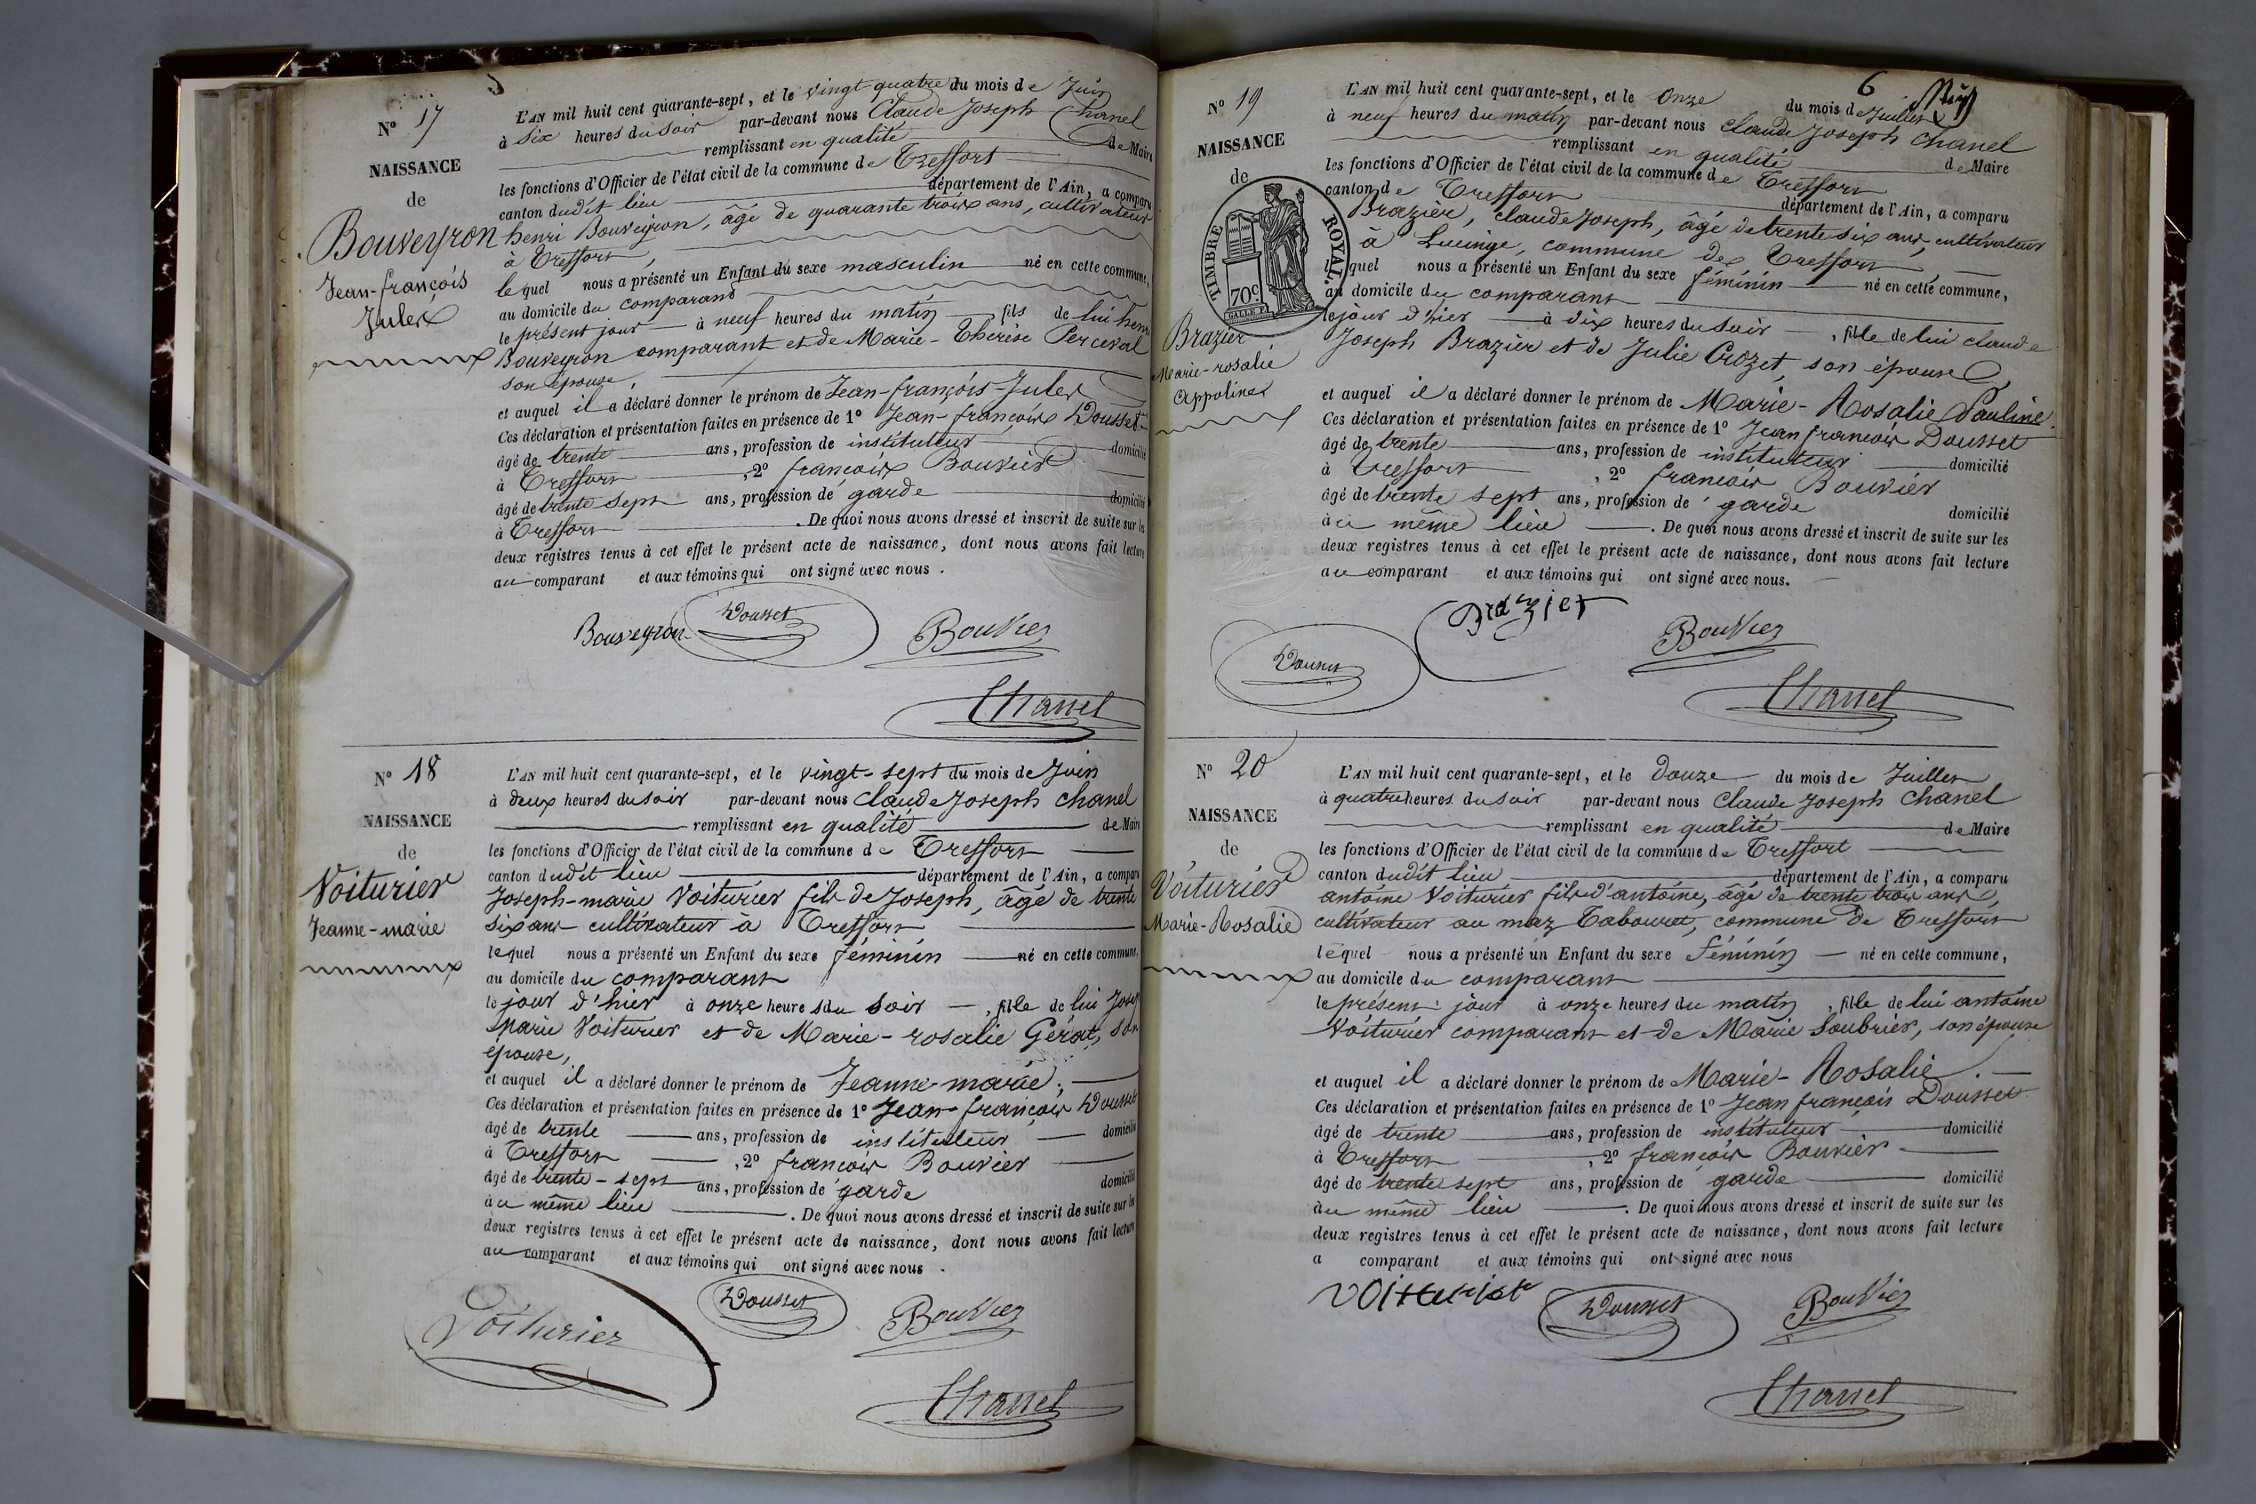 N° 17
NAISSANCE
de
Bouveyron
Jean-françois
Jules
L'AN mil huit cent quarante-sept, et le vingt-quatre du mois de Juin
à six heures du soir par-devant nous Claude Joseph Chanel
remplissant en qualité de Maire
les fonctions d'Officier de l'état civil de la commune de Treffort
canton dudit lieu département de l'Ain, a comparu
henri Bouveyron, âgé de quarante trois ans, cultivateur
à Treffort,
lequel nous a présenté un Enfant du sexe masculin né en cette commune,
au domicile du comparant
le présent jour à neuf heures du matin fils de lui henri
Bouveyron comparant et de Marie-Thérèse Perceval
son épouse,
et auquel il a déclaré donner le prénom de Jean-françois-Jules
Ces déclaration et présentation faites en présence de 1° Jean-françois Dousset
âgé de trente ans, profession de instituteur domicilié
à Treffort, 2° françois Bouvier
âgé de trente sept ans, profession de garde domicilié
à Treffort. De quoi nous avons dressé et inscrit de suite sur les
deux registres tenus à cet effet le présent acte de naissance, dont nous avons fait lecture
au comparant et aux témoins qui ont signé avec nous.
Bouveyron Dousset Bouvier
Chanel
N° 18
NAISSANCE
de
Voiturier
Jeanne-marie
L'AN mil huit cent quarante-sept, et le vingt-sept du mois de Juin
à deux heures du soir par-devant nous Claude Joseph Chanel
remplissant en qualité de Maire
les fonctions d'Officier de l'état civil de la commune de Treffort
canton dudit lieu département de l'Ain, a comparu
Joseph-marie Voiturier fils de Joseph, âgé de trente
six ans cultivateur à Treffort
lequel nous a présenté un Enfant du sexe féminin né en cette commune,
au domicile du comparant
le jour d'hier à onze heures du soir, fille de lui Josep
marie Voiturier et de Marie-rosalie Gérat, son
épouse,
et auquel il a déclaré donner le prénom de Jeanne-marie;
Ces déclaration et présentation faites en présence de 1° Jean-françois Dousset
âgé de trente ans, profession de instituteur domicilié
à Treffort, 2° françois Bouvier
âgé de trente-sept ans, profession de garde domicilié
au même lieu. De quoi nous avons dressé et inscrit de suite sur les
deux registres tenus à cet effet le présent acte de naissance, dont nous avons fait lecture
au comparant et aux témoins qui ont signé avec nous.
Voiturier Dousset Bouvier
Chanel
6
N° 19
NAISSANCE
de
TIMBRE ROYAL.
70c.
Brazier
Marie-rosalie
Appoline
L'AN mil huit cent quarante-sept, et le Onze du mois de Juillet
à neuf heures du matin par-devant nous Claude Joseph Chanel
remplissant en qualité de Maire
les fonctions d'Officier de l'état civil de la commune de Treffort
canton de Treffort département de l'Ain, a comparu
Brazier, Claude Joseph, âgé de trente six ans, cultivateur
à Lucinge, commune de Treffort
lequel nous a présenté un Enfant du sexe féminin né en cette commune,
au domicile du comparant
le jour d'hier à dix heures du soir, fille de lui claude
Joseph Brazier et de Julie Crozet, son épouse
et auquel il a déclaré donner le prénom de Marie-Rosalie Pauline.
Ces déclaration et présentation faites en présence de 1° Jean françois Dousset
âgé de trente ans, profession de instituteur domicilié
à Treffort, 2° françois Bouvier
âgé de trente sept ans, profession de garde domicilié
au même lieu. De quoi nous avons dressé et inscrit de suite sur les
deux registres tenus à cet effet le présent acte de naissance, dont nous avons fait lecture
au comparant et aux témoins qui ont signé avec nous.
Brazier Bouvier
Dousset
Chanel
N° 20
NAISSANCE
de
Voiturier
Marie-Rosalie
L'AN mil huit cent quarante-sept, et le Douze du mois de Juillet
à quatre heures du soir par-devant nous Claude Joseph Chanel
remplissant en qualité de Maire
les fonctions d'Officier de l'état civil de la commune de Treffort
canton dudit lieu département de l'Ain, a comparu
antoine Voiturier fils d'antoine, âgé de trente trois ans,
cultivateur au maz Tabouret, commune de Treffort
lequel nous a présenté un Enfant du sexe féminin né en cette commune,
au domicile du comparant
le présent jour à onze heures du matin, fille de lui antoine
Voiturier comparant et de Marie Soubrier, son épouse
et auquel il a déclaré donner le prénom de Marie-Rosalie.
Ces déclaration et présentation faites en présence de 1° Jean françois Dousset
âgé de trente ans, profession de instituteur domicilié
à Treffort, 2° françois Bouvier
âgé de trente sept ans, profession de garde domicilié
au même lieu. De quoi nous avons dressé et inscrit de suite sur les
deux registres tenus à cet effet le présent acte de naissance, dont nous avons fait lecture
a comparant et aux témoins qui ont signé avec nous
Dousset Bouvier
Chanel